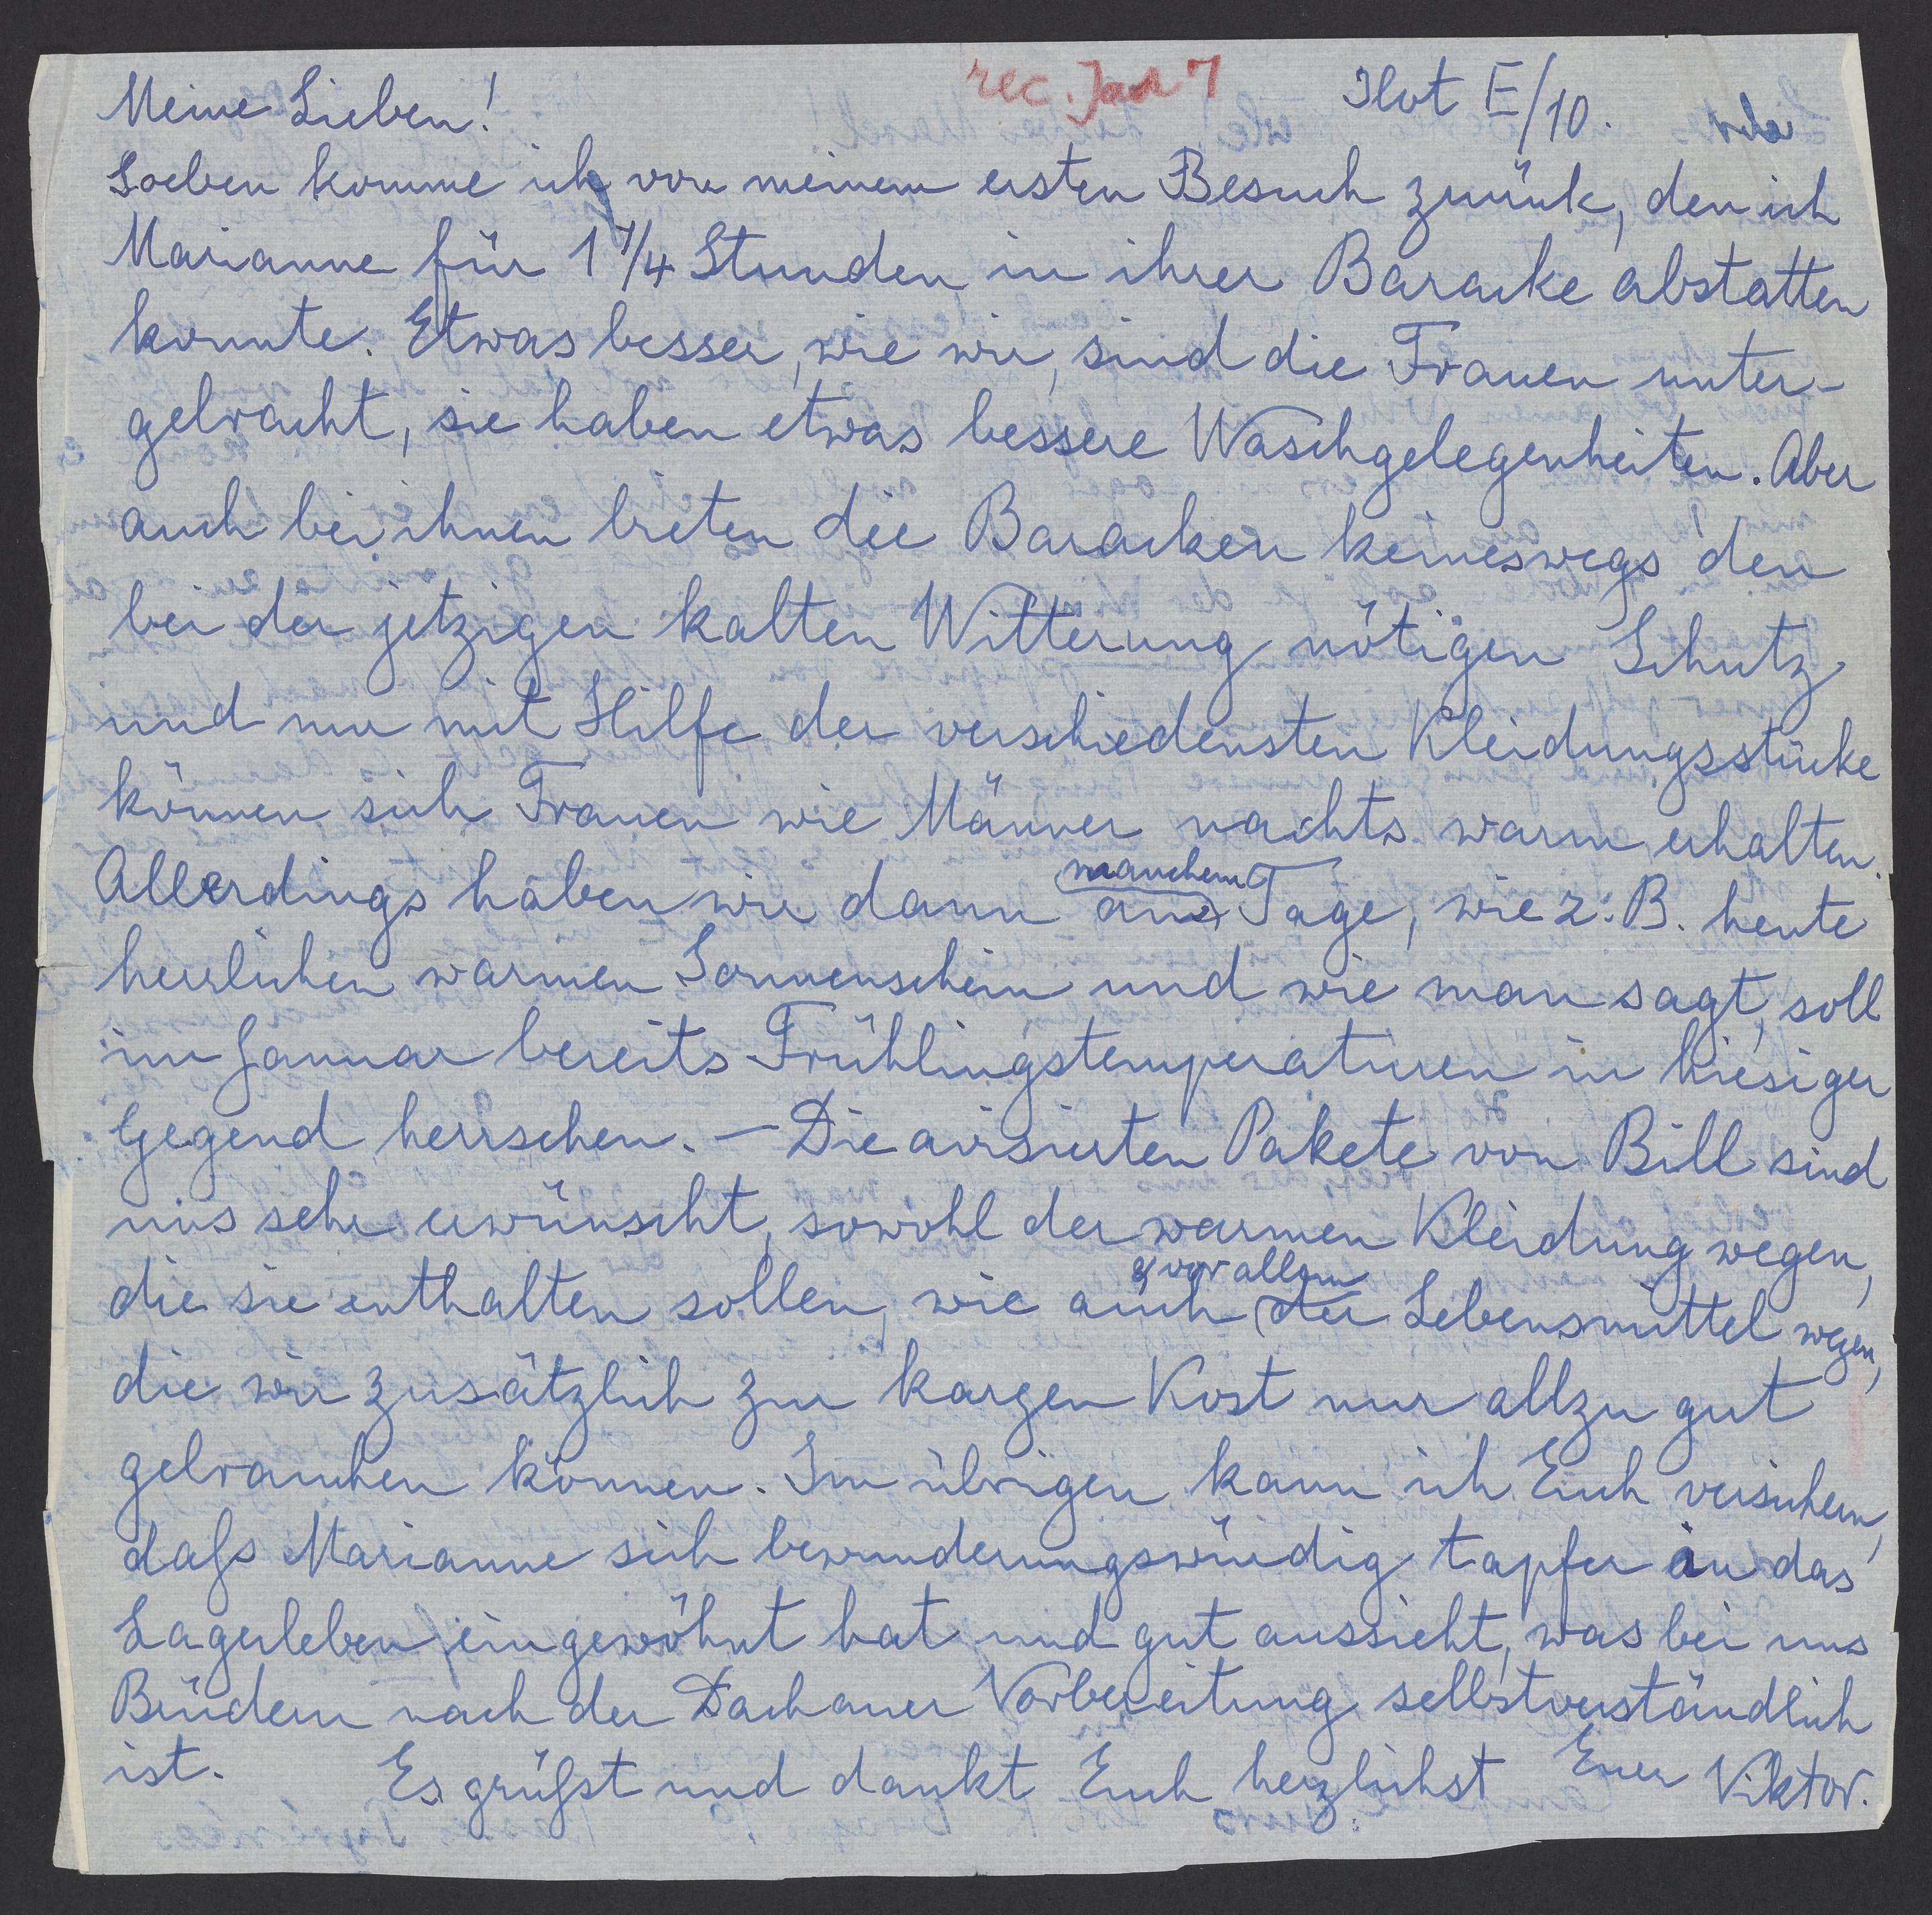 rec. Jan 7
Ilot E/10.
Meine Lieben!
Soeben komme ich von meinem ersten Besuch zurück, den ich
Marianne für 1 1/4 Stunden in ihrer Baracke abstatten
konnte. Etwas besser, wie wir, sind die Frauen unter-
gebracht, sie haben etwas bessere Waschgelegenheiten. Aber
auch bei ihnen bieten die Baracken keineswegs den
bei der jetzigen kalten Witterung nötigen Schutz
und nur mit Hilfe der verschiedensten Kleidungsstücke
können sich Frauen wie Männer nachts warm erhalten.
Allerdings haben wir dann an manchem Tage, wie z. B. heute
herrlichen warmen Sonnenschein und wie man sagt, soll
im Januar bereits Frühlingstemperaturen in hiesiger
Gegend herrschen. — Die avisierten Pakete von Bill sind
uns sehr erwünscht, sowohl der warmen Kleidung wegen,
die sie enthalten sollen, wie auch & vor allem der Lebensmittel wegen,
die wir zusätzlich zur kargen Kost nur allzu gut
gebrauchen können. Im übrigen kann ich Euch versichern,
dafs Marianne sich bewunderungswürdig tapfer in das
Lagerleben eingewöhnt hat und gut aussieht, was bei uns
Brüdern nach der Dachauer Vorbereitung selbstverständlich
ist. Es grüfst und dankt Euch herzlichst Euer Viktor.